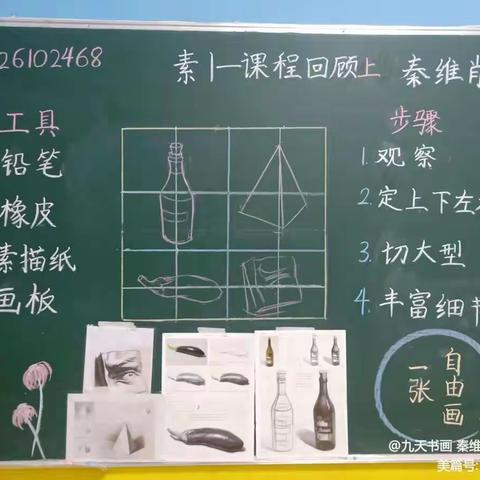 26102468
素1一课程回顾上
秦维肖
工具
铅笔
橡皮
素描纸
画板
步骤
1.观察
2.定上下左
3.切大型
4.丰富细节
自由画
一张
@九天书画 秦维
美篇号: